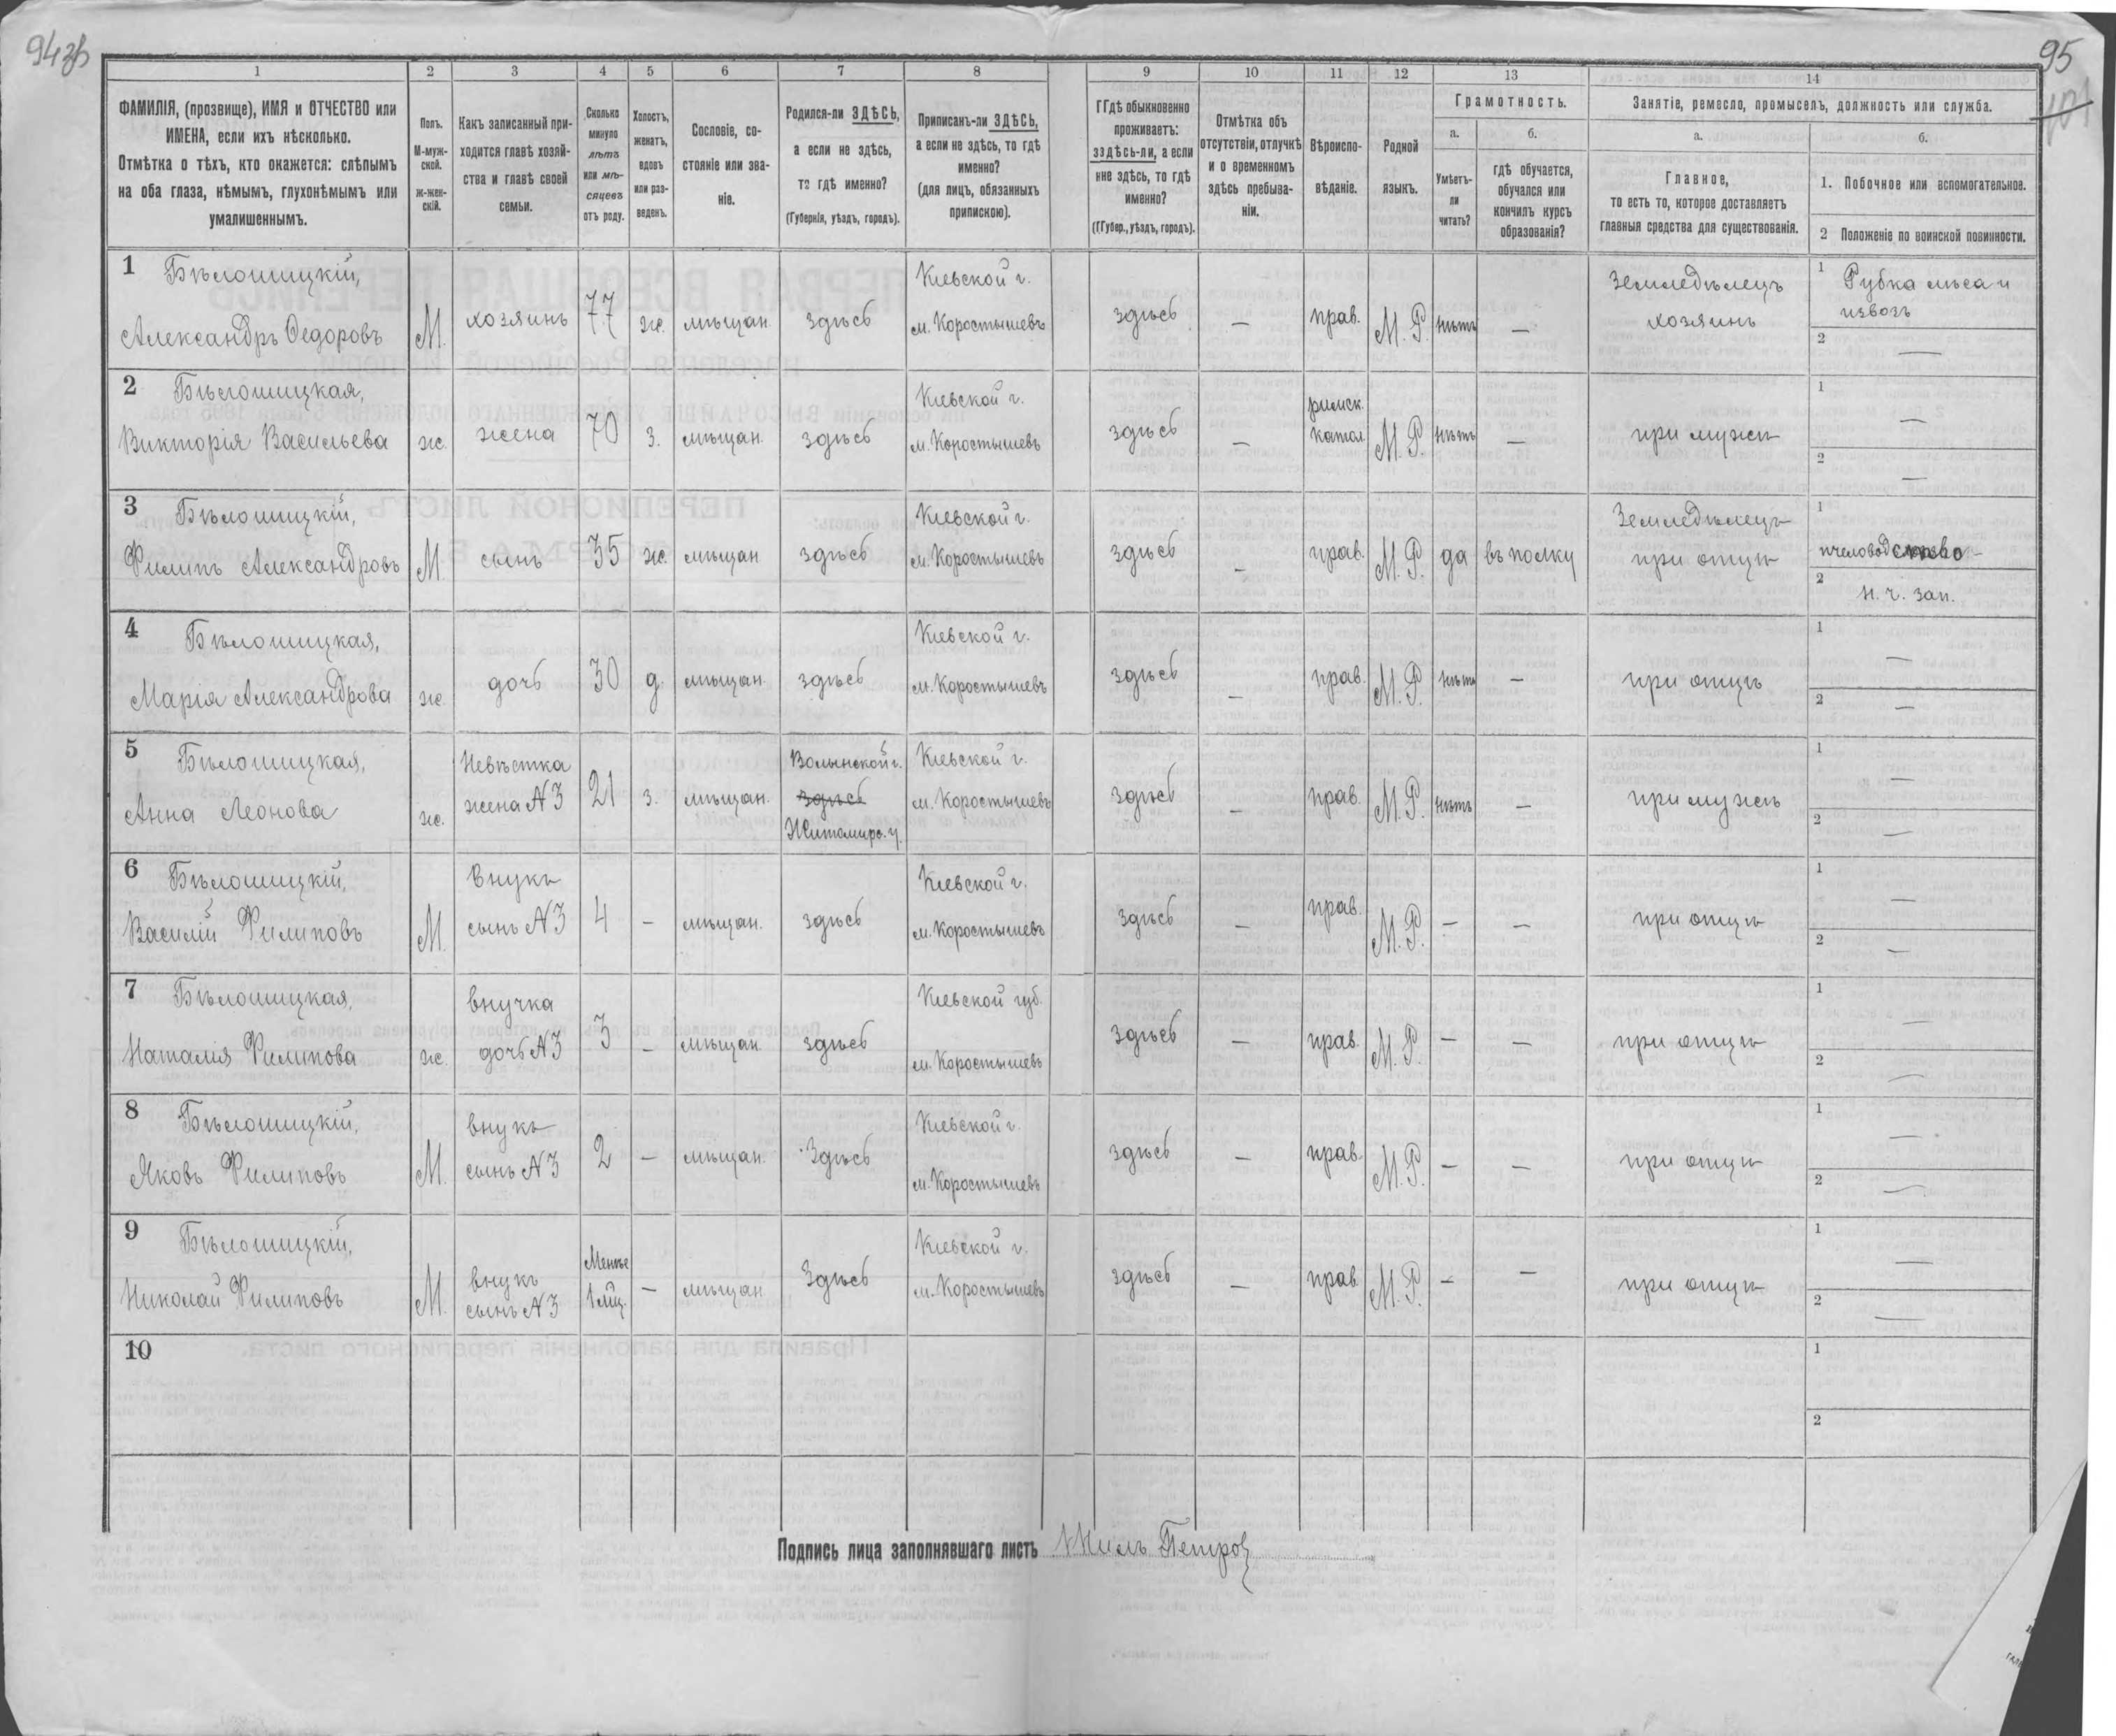 94 зв
95
101
1
2
3
4
5
6
7
8
9
10
11
12
13
14
ФАМИЛІЯ, (прозвище), ИМЯ и ОТЧЕСТВО или
ИМЕНА, если ихъ нѣсколько.
Отмѣтка о тѣхъ, кто окажется: слѣпымъ
на оба глаза, нѣмымъ, глухонѣмымъ или
умалишеннымъ.
Полъ.
М-муж-
ской.
Ж-жен-
скій.
Какъ записанный при-
ходится главѣ хозяй-
ства и главѣ своей
семьи.
Сколько
минуло
лѣтъ
или мѣ-
сяцевъ
отъ роду.
Холостъ,
женатъ,
вдовъ
или раз-
веденъ.
Сословіе, со-
стояніе или зва-
ніе.
Родился-ли ЗДѢСЬ,
а если не здѣсь,
то гдѣ именно?
(Губернія, уѣздъ, городъ).
Приписанъ-ли ЗДѢСЬ,
а если не здѣсь, то гдѣ
именно?
(для лицъ, обязанныхъ
припискою).
ГГдѣ обыкновенно
проживаетъ:
ззДѢсь-ли, а если
нне здѣсь, то гдѣ
именно?
(ГГубер., уѣздъ, городъ).
Отмѣтка объ
отсутствіи, отлучкѣ
и о временномъ
здѣсь пребыва-
ніи.
Вѣроиспо-
вѣданіе.
Родной
языкъ.
Грамотность.
а.
Умѣетъ-
ли
читать?
б.
гдѣ обучается,
обучался или
кончилъ курсъ
образованія?
Занятіе, ремесло, промыселъ, должность или служба.
а.
Главное,
то есть то, которое доставляетъ
главныя средства для существованія.
б.
1. Побочное или вспомогательное.
2 Положеніе по воинской повинности.
1 Бѣлошицкій,
Александръ Ѳедоровъ
М.
хозяинъ
77
ж.
мѣщан.
здѣсь
Кіевской г.
м. Коростышевъ
здѣсь
—
прав.
М. Р.
нѣтъ
—
Земледѣлецъ
хозяинъ
1 Рубка лѣса и
извозъ
2 —
2 Бѣлошицкая,
Викторія Васильева
ж.
жена
70
з.
мѣщан.
здѣсь
Кіевской г.
м. Коростышевъ
здѣсь
—
римск.
катол.
М. Р.
нѣтъ
—
при мужѣ
1 —
2 —
3 Бѣлошицкій,
Филипъ Александровъ
М.
сынъ
35
ж.
мѣщан
здѣсь
Кіевской г.
м. Коростышевъ
здѣсь
—
прав.
М. Р.
да
въ полку
Земледѣлецъ
при отцѣ
1
пчеловодство
2
н. ч. зап.
4 Бѣлошицкая,
Марія Александрова
ж.
дочь
30
д.
мѣщан.
здѣсь
Кіевской г.
м. Коростышевъ
здѣсь
—
прав.
М. Р.
нѣтъ
—
при отцѣ
1 —
2 —
5 Бѣлошицкая,
Анна Леонова
ж.
Невѣстка
жена №3
21
з.
мѣщан.
Волынской г.
здѣсь
Житомирс. у.
Кіевской г.
м. Коростышевъ
здѣсь
—
прав.
М. Р.
нѣтъ
—
при мужѣ
1 —
2 —
6 Бѣлошицкій,
Василій Филиповъ
М.
Внукъ
сынъ №3
4
—
мѣщан.
здѣсь
Кіевской г.
м. Коростышевъ
здѣсь
—
прав.
М. Р.
—
—
при отцѣ
1 —
2 —
7 Бѣлошицкая,
Наталія Филипова
ж.
внучка
дочь №3
3
—
мѣщан.
здѣсь
Кіевской губ.
м. Коростышевъ
здѣсь
—
прав.
М. Р.
—
—
при отцѣ
1 —
2 —
8 Бѣлошицкій,
Яковъ Филиповъ
М.
внукъ
сынъ №3
2
—
мѣщан.
Здѣсь
Кіевской г.
м. Коростышевъ
здѣсь
—
прав.
М. Р.
—
—
при отцѣ
1 —
2 —
9 Бѣлошицкій,
Николай Филиповъ
М.
внукъ
сынъ №3
Менѣе
1 мѣц.
—
мѣщан
Здѣсь
Кіевской г.
м. Коростышевъ
здѣсь
—
прав.
М. Р.
—
—
при отцѣ
1 —
2 —
10
1
2
Подпись лица заполнявшаго листъ Петров